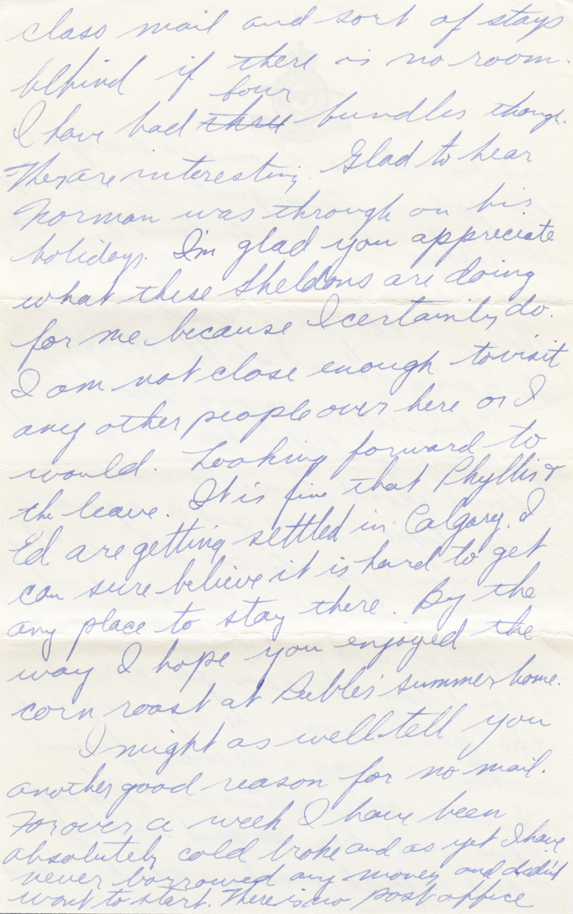 class mail and sort of stays
behind if there is no room.
four
I have had three bundles though.
They are interesting. Glad to hear
Norman was through on his
holidays. I'm glad you appreciate
what these Sheldons are doing
for me because I certainly do.
I am not close enough to visit
any other people over here or I
would. Looking forward to
the leave. It is fine that Phyllis &
Ed are getting settled in Calgary. I
can sure believe it is hard to get
any place to stay there. By the
way I hope you enjoyed the
corn roast at summer home.
I might as well tell you
another good reason for no mail.
For over a week I have been
absolutely cold broke and as yet I have
never borrowed any money and didn't
want to start. There is no post office